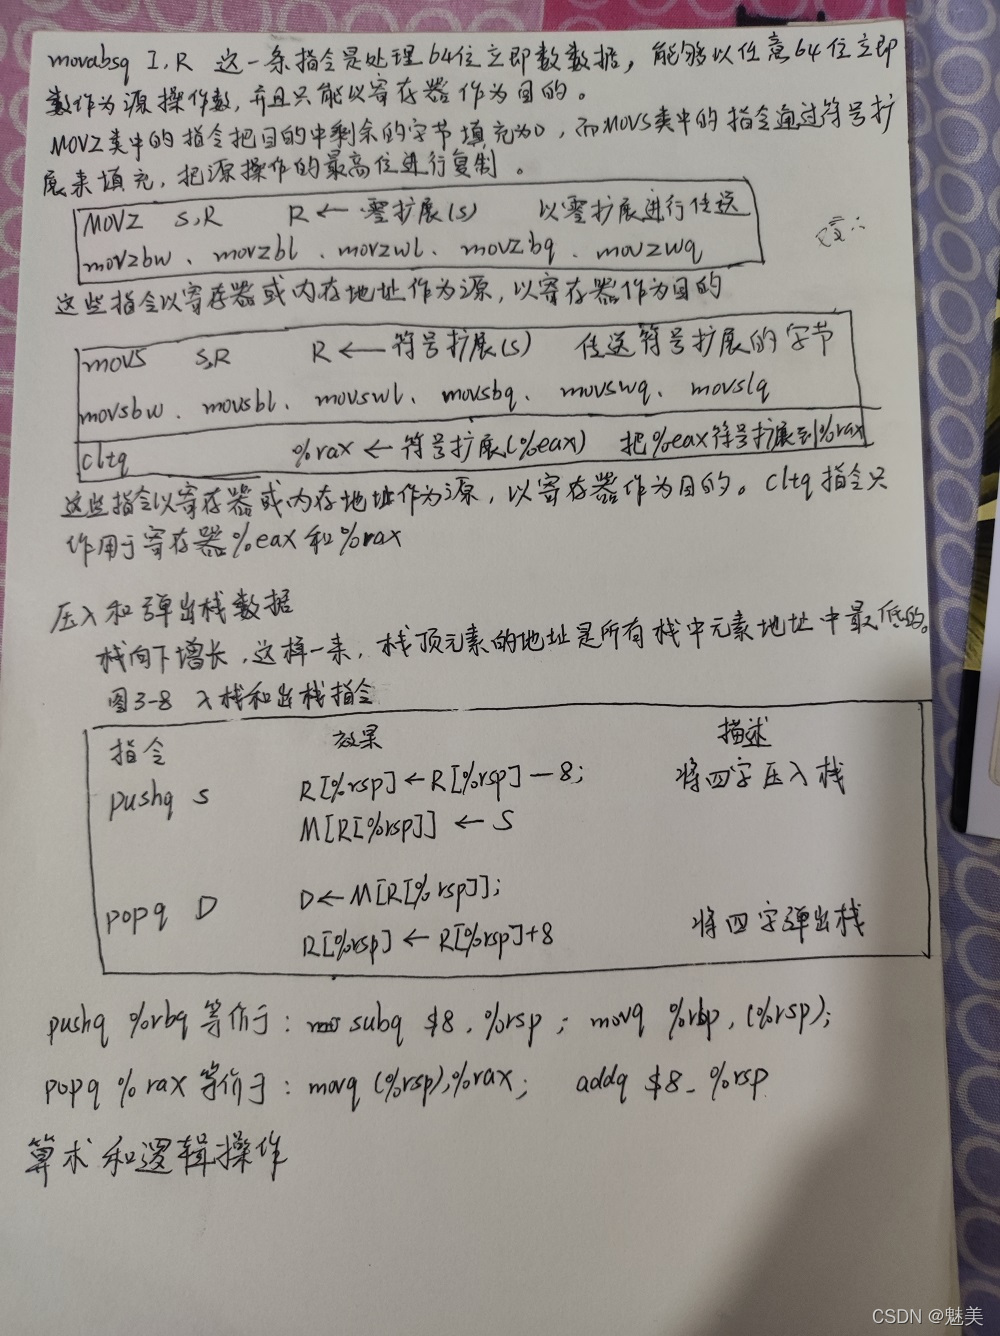 movabsq I,R 这一条指令是处理64位立即数数据，能够以任意64位立即
数作为源操作数，并且只能以寄存器作为目的。
MOVZ类中的指令把目的中剩余的字节填充为0，而MOVS类中的指令通过符号扩
展来填充，把源操作的最高位进行复制。
MOVZ S,R R ← 零扩展(S) 以零扩展进行传送
movzbw、movzbl、movzwl、movzbq、movzwq
这些指令以寄存器或内存地址作为源，以寄存器作为目的
movs S,R R ← 符号扩展(S) 传送符号扩展的字节
movsbw、movsbl、movswl、movsbq、movswq、movslq
cltq %rax ← 符号扩展(%eax) 把%eax符号扩展到%rax
这些指令以寄存器或内存地址作为源，以寄存器作为目的。cltq指令只
作用于寄存器%eax和%rax
压入和弹出栈数据
栈向下增长，这样一来，栈顶元素的地址是所有栈中元素地址中最低的。
图3-8 入栈和出栈指令
指令 效果 描述
pushq S R[%rsp] ← R[%rsp] - 8; 将四字压入栈
M[R[%rsp]] ← S
popq D D ← M[R[%rsp]]; 将四字弹出栈
R[%rsp] ← R[%rsp]+8
pushq %rbq 等价于: subq $8, %rsp; movq %rbp, (%rsp);
popq %rax 等价于: movq (%rsp),%rax; addq $8, %rsp
算术和逻辑操作
CSDN @魅美